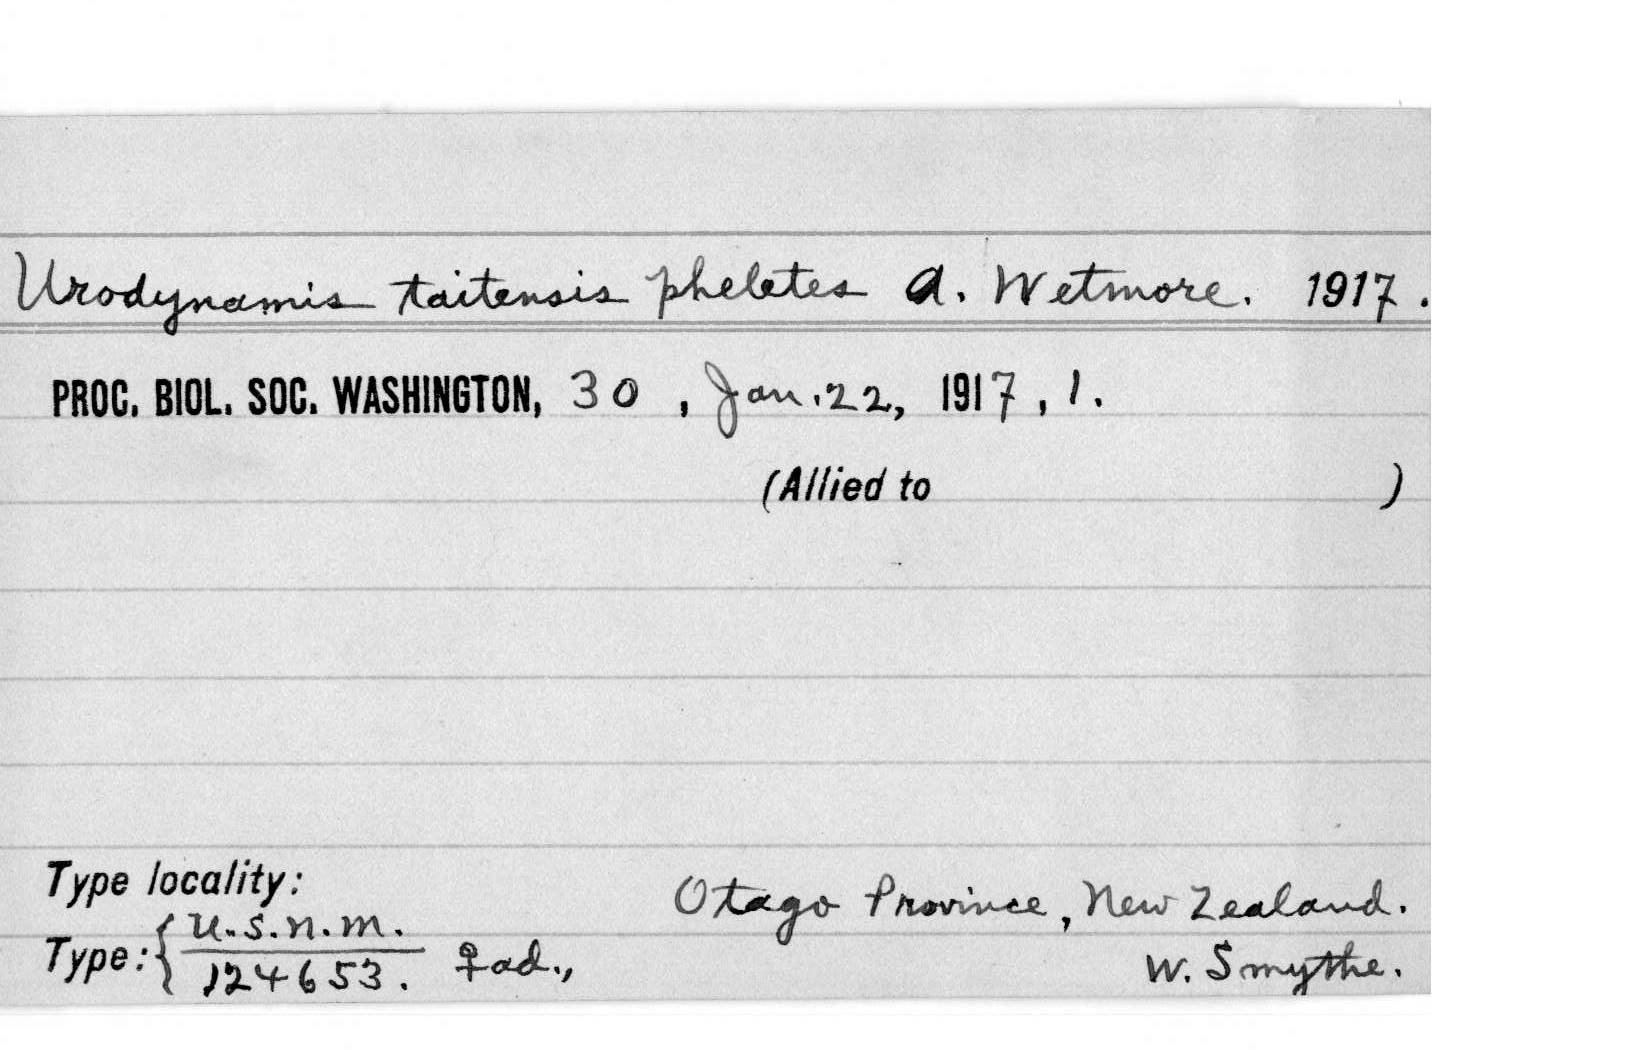 Urodynamis taitensis pheletes A. Wetmore. 1917.
PROC. BIOL. SOC. WASHINGTON, 30, Jan. 22, 1917, 1.
(Allied to )
Type locality:
Otago Province, New Zealand.
Type: { U.S.N.M.
124653. ♀ ad., W. Smythe.